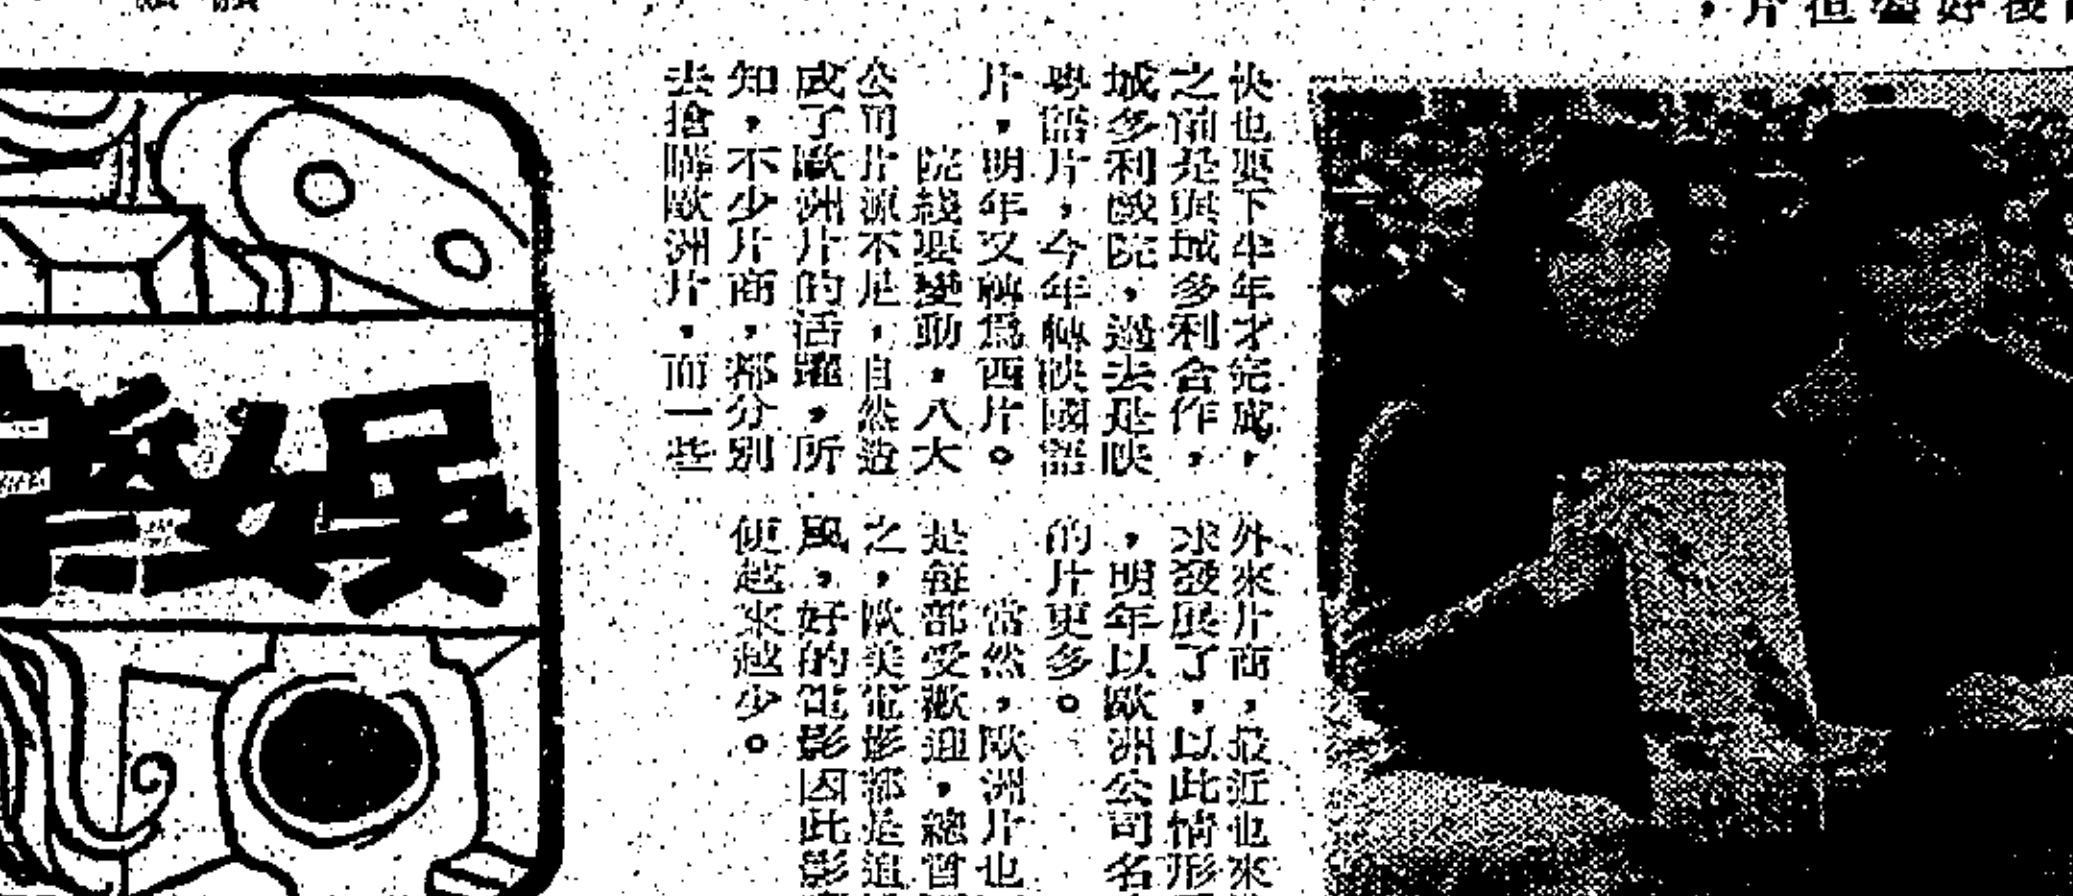 ，片但壘好後
快也要下半年才完成，
之前是與城多利合作，
城多利戲院，過去是映
粵語片，今年轉映國語
片，明年又轉爲西片。
院綫要變動，八大
公司片源不足，自然造
成了歐洲片的活躍，所
知，不少片商，都分別
去搶購歐洲片，而一些
外來片商，最近也來
求發展了，以此情形
，明年以歐洲公司名
的片更多。
當然，歐洲片也
是每部受歡迎，總
之，歐美電影都是追
風，好的電影因此影
便越來越少。
娛